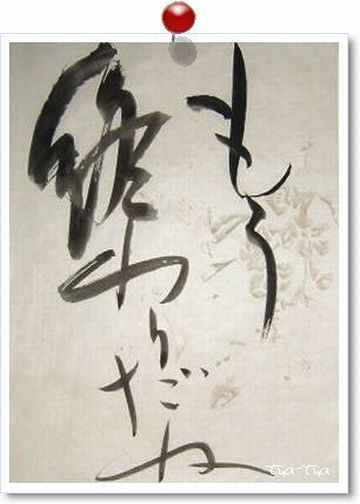 もう
終わりだね
tya-tya